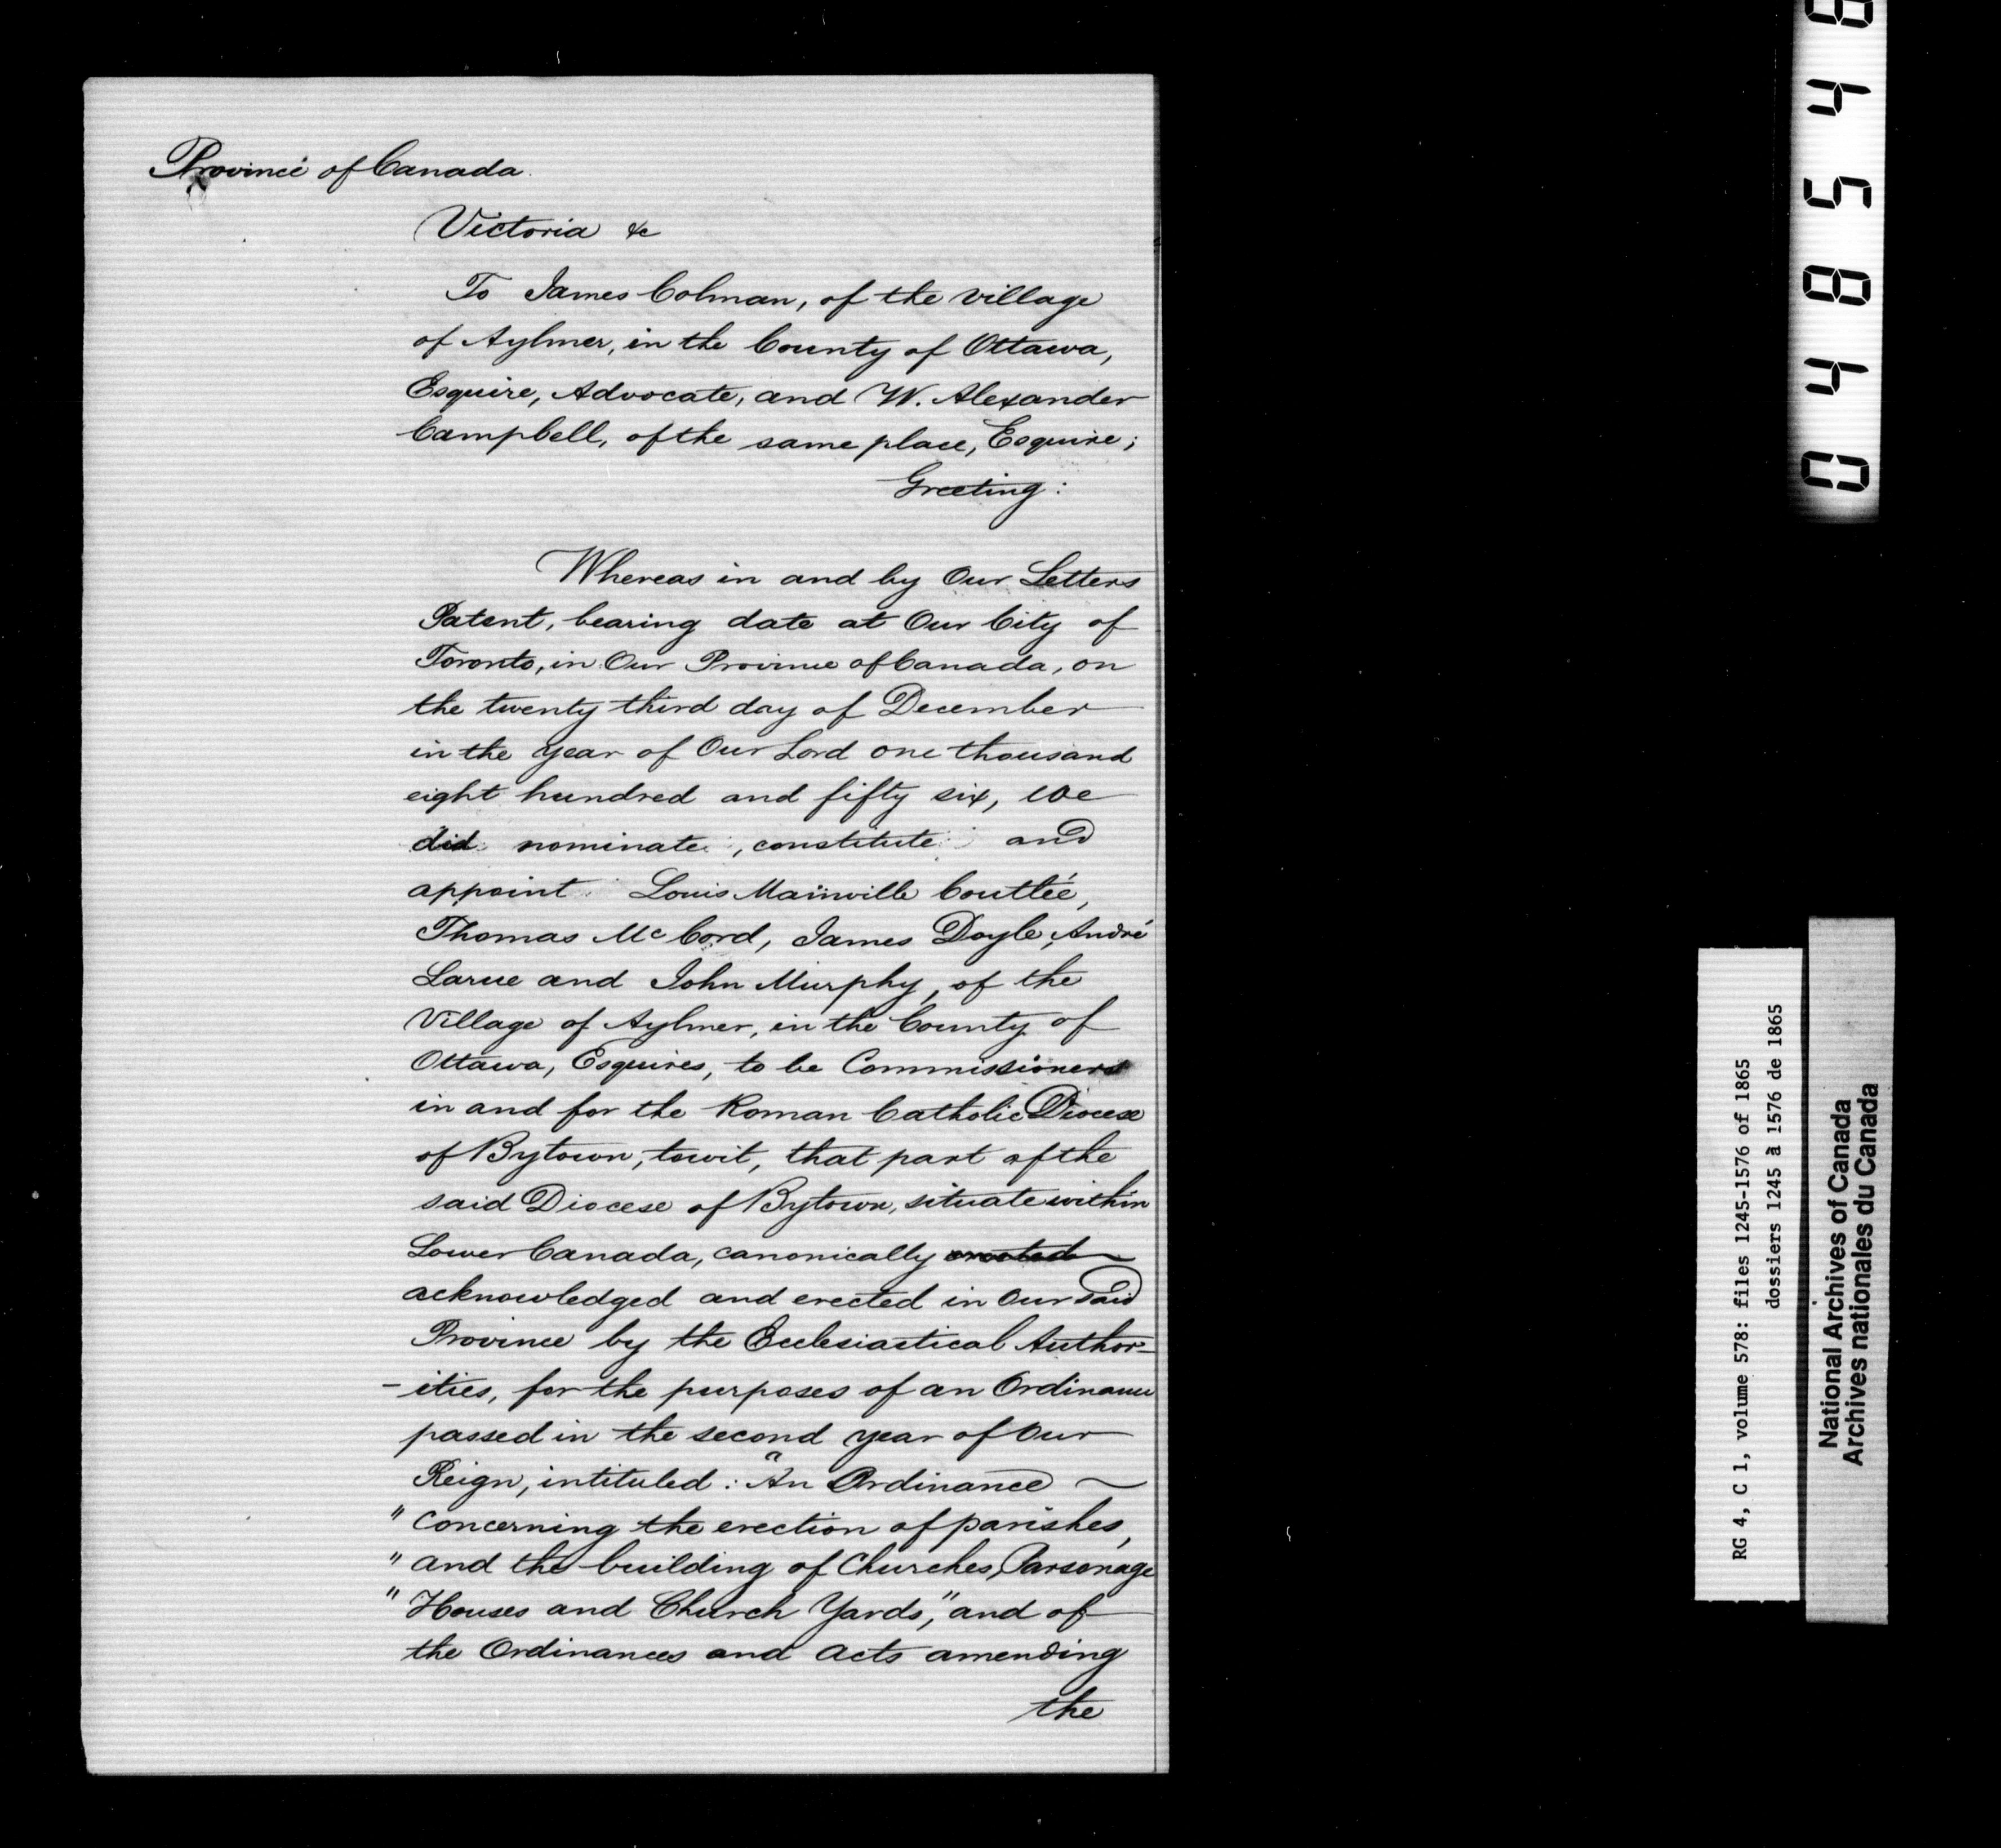 Province of Canada.
Victoria &c
To James Colman, of the village
of Aylmer, in the County of Ottawa,
Esquire, Advocate, and W. Alexander
Campbell, of the same place, Esquire;
Greeting:
Whereas in and by Our Letters
Patent, bearing date at Our City of
Toronto, in Our Province of Canada, on
the twenty third day of December
in the year of Our Lord one thousand
eight hundred and fifty six, We
did nominate, constitute and
appoint Louis Mainville Coutlée,
Thomas McCord, James Doyle, André
Larue and John Murphy, of the
Village of Aylmer, in the County of
Ottawa, Esquires, to be Commissioners
in and for the Roman Catholic Diocese
of Bytown, towit, that part of the
said Diocese of Bytown, situate within
Lower Canada, canonically erected
acknowledged and erected in Our said
Province by the Ecclesiastical Author-
-ities, for the purposes of an Ordinance
passed in the second year of Our
Reign, intituled: "An Ordinance
"concerning the erection of parishes,
"and the building of Churches, Parsonage
"Houses and Church Yards," and of
the Ordinances and Acts amending
the
048548
RG 4, C 1, volume 578: files 1245-1576 of 1865
dossiers 1245 à 1576 de 1865
National Archives of Canada
Archives nationales du Canada